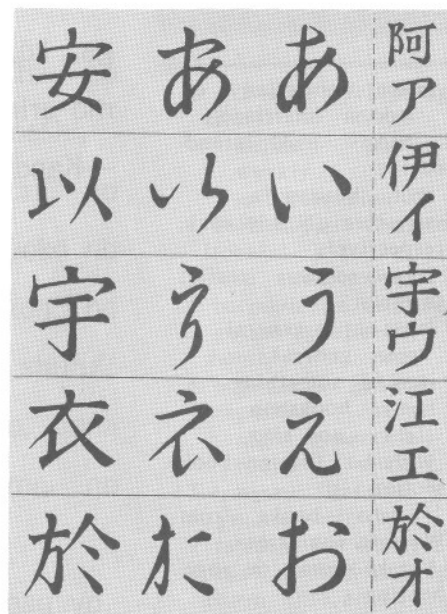 安 あ あ 阿ア
以 い い 伊イ
宇 う う 宇ウ
衣 え え 江エ
於 お お 於オ